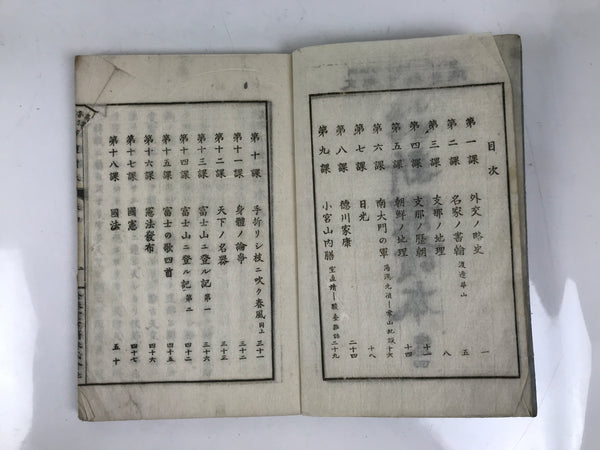 目次
第一課 外交ノ略史 一
第二課 名家ノ書翰 渡邊崋山 五
第三課 支那ノ地理 八
第四課 支那ノ歷朝 十一
第五課 朝鮮ノ地理 十四
第六課 南大門の軍 十六
第七課 日光 十八
第八課 德川家康 二十四
第九課 小宮山内膳 二十九
第十課 手折リシ枝ニ吹ク春風 同上 三十一
第十一課 身體ノ論爭 三十二
第十二課 天下ノ名器 三十三
第十三課 富士山ニ登ル記 第一 三十六
第十四課 富士山ニ登ル記 第二 四十三
第十五課 富士の歌四首 四十五
第十六課 憲法發布 四十六
第十七課 國憲 四十七
第十八課 國法 五十